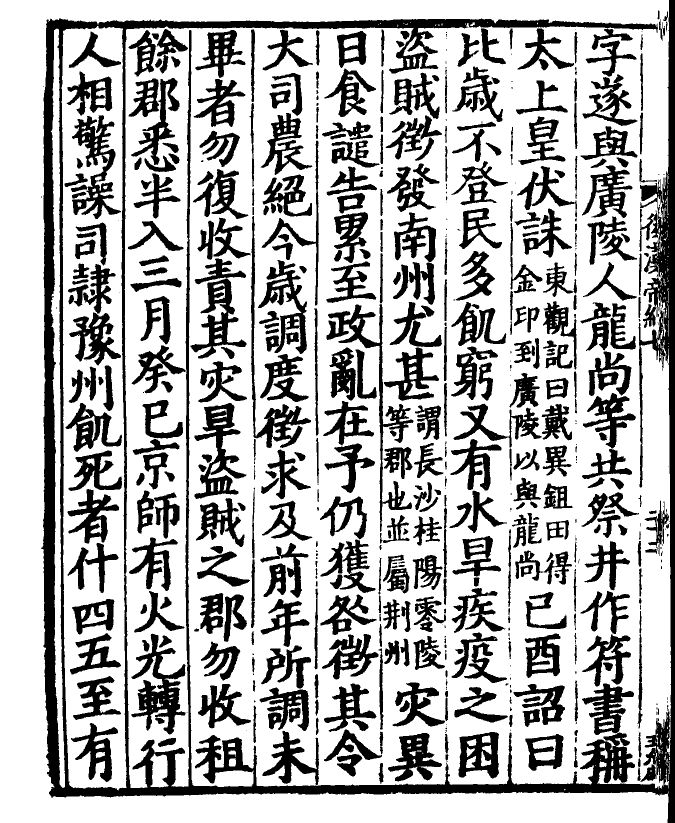 字遂與廣陵人龍尚等共祭井作符書稱
太上皇伏誅東觀記曰戴異鉏田得金印到廣陵以與龍尚己酉詔曰
比歳不登民多飢窮又有水旱疾疫之困
盜賊徴發南州尤甚謂長沙桂陽零陵等郡也並屬荆州灾異
日食譴告累至政亂在予仍獲咎徴其令
大司農絕今歳調度徴求及前年所調未
畢者勿復收責其灾旱盜賊之郡勿收租
餘郡悉半入三月癸巳京師有火光轉行
人相驚譟司隷豫州飢死者什四五至有